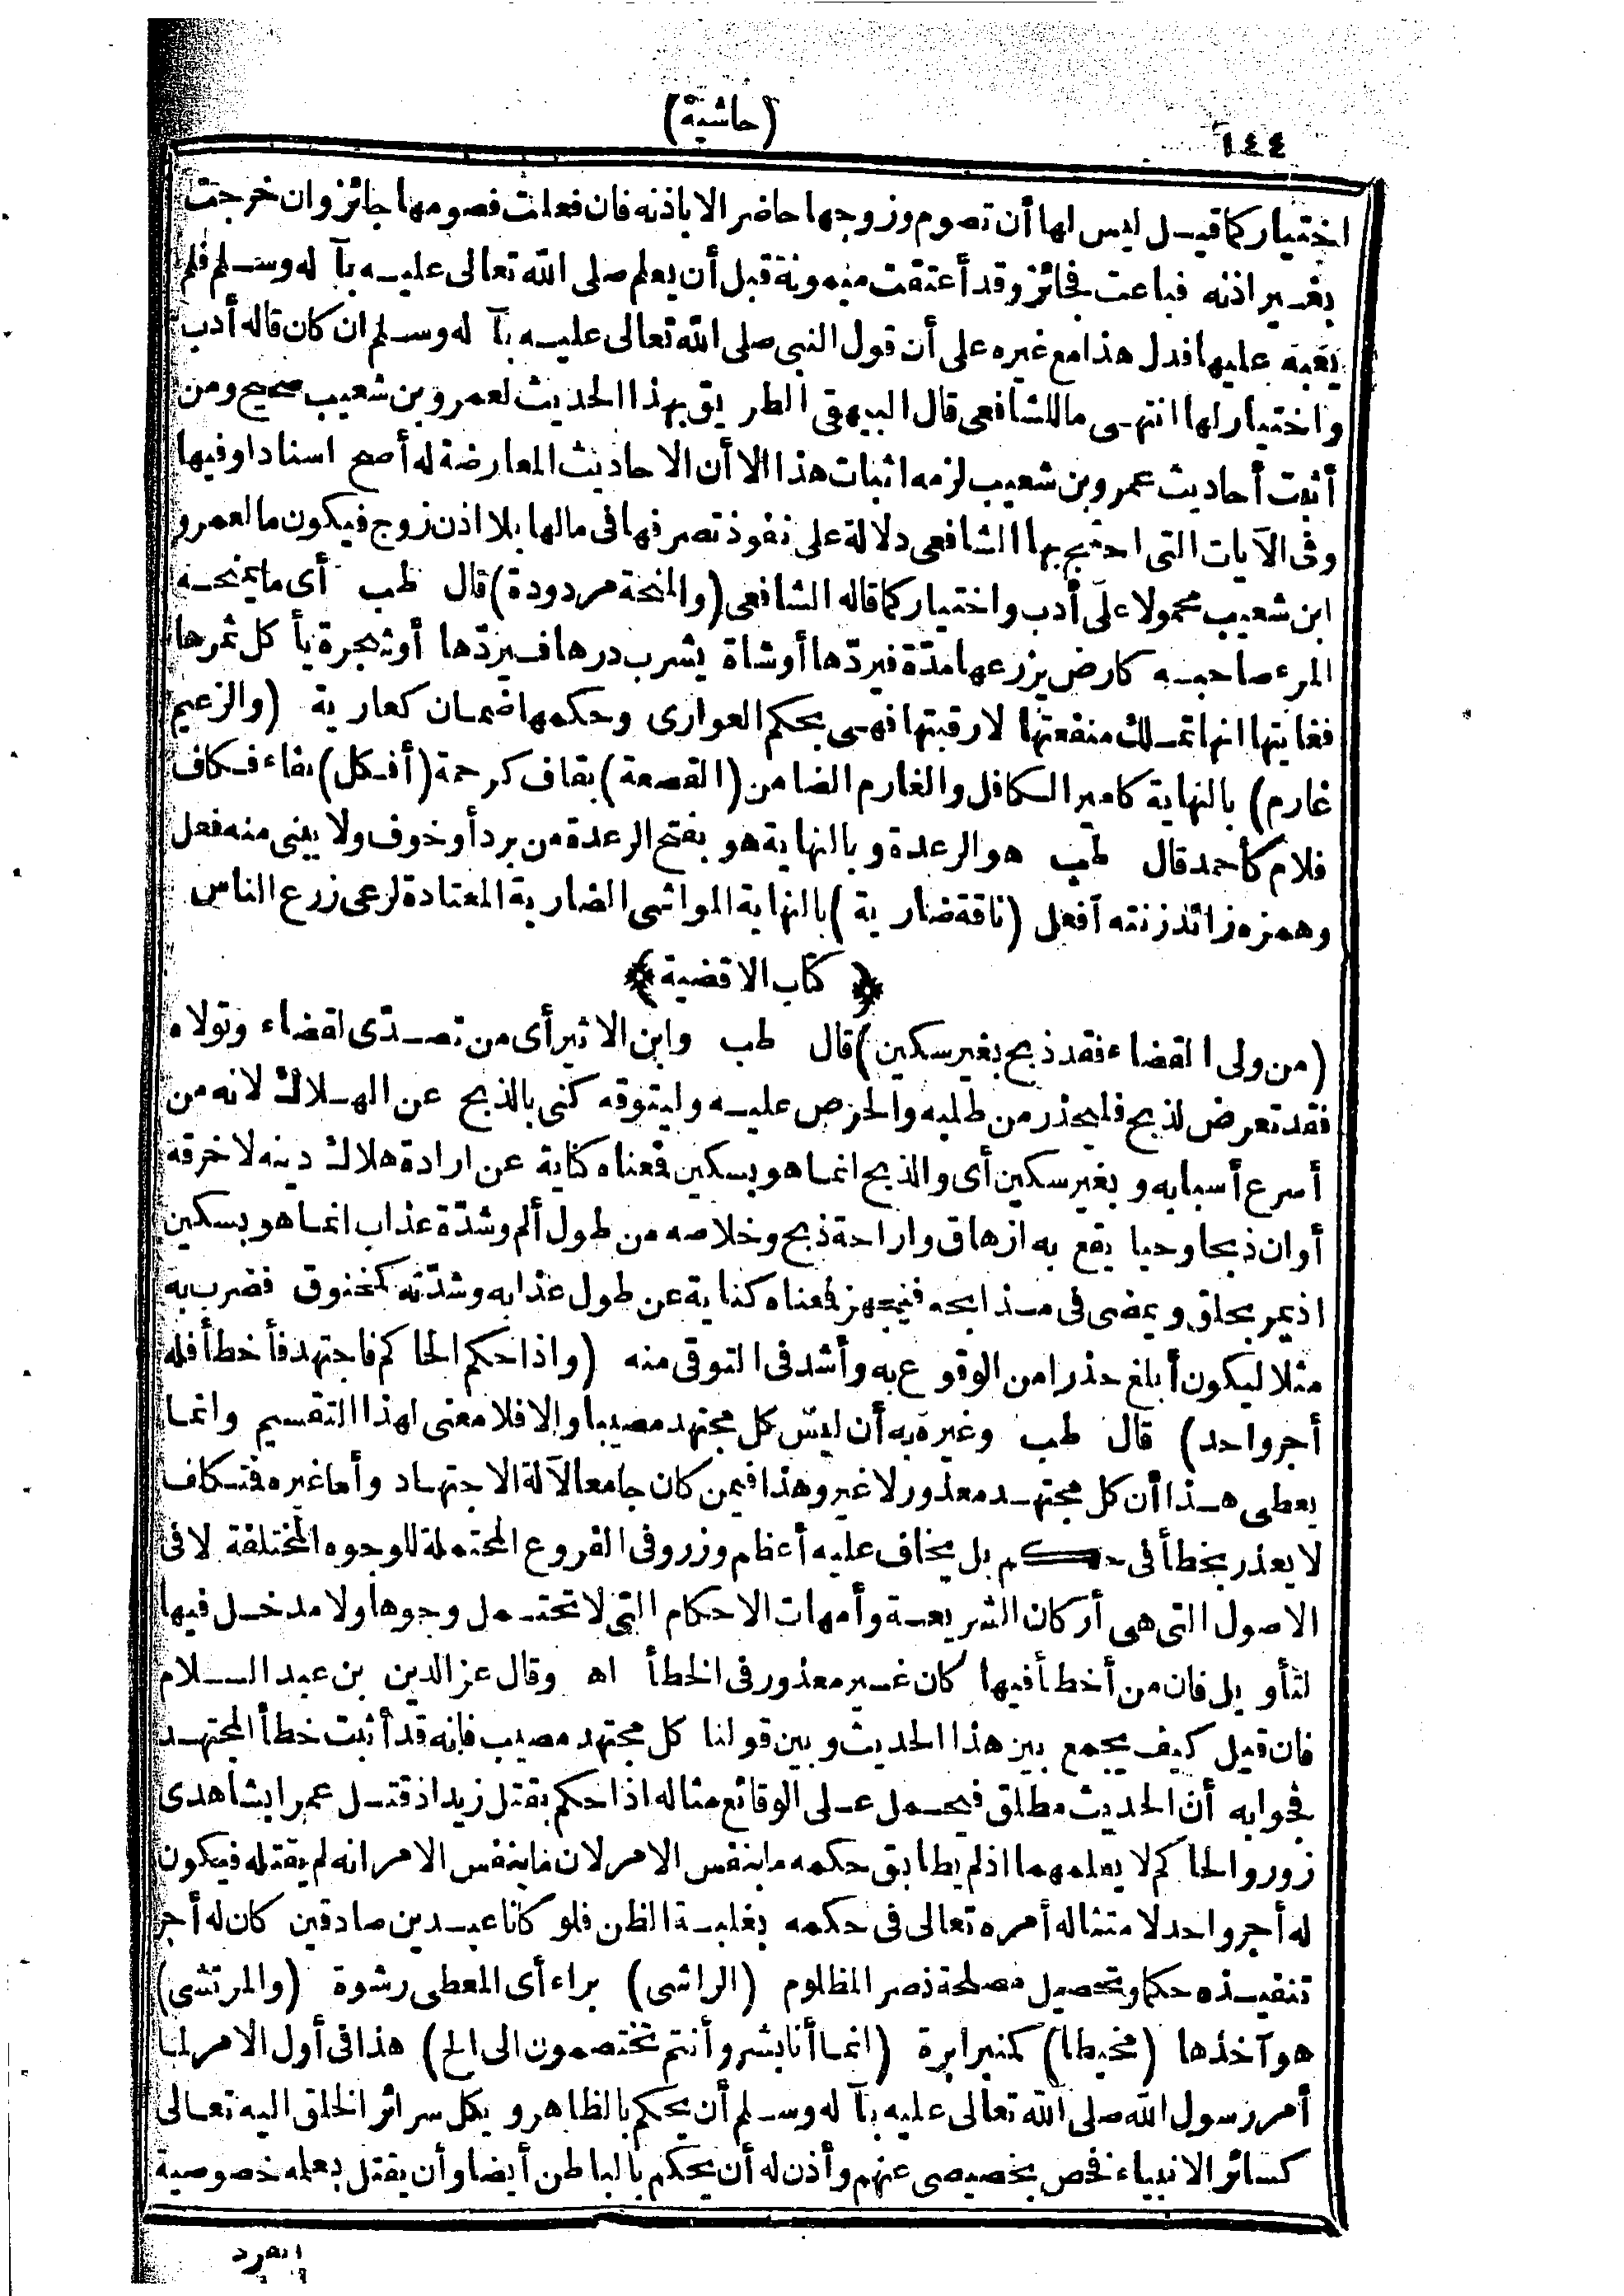 ١٤٤
(حاشية)
اختيار كما قيل ليس لها أن تصوم وزوجها حاضر الا باذنه فان فعلت فصومها جائز وان خرجت
بغير اذنه فباعت فجائز وقد أعتقت ميمونة قبل أن يعلم صلى الله تعالى عليه بآ له وسلم فلم
يعبه عليها فدل هذا مع غيره على أن قول النبى صلى الله تعالى عليه بآ له وسلم ان كان قاله أدب
واختيار لها انتهى ما للشافعى قال البيهقى الطريق بهذا الحديث لعمرو بن شعيب صحيح ومن
أثبت أحاديث عمرو بن شعيب لزمه اثبات هذا الا أن الاحاديث المعارضة له أصح اسنادا وفيها
وفى الآيات التى احتج بها الشافعى دلالة على نفوذ تصرفها فى مالها بلا اذن زوج فيكون ما لعمرو
ابن شعيب محمولا على أدب واختيار كما قاله الشافعى (والمنحة مردودة) قال طب أى ما يمنحه
المرء صاحبه كارض يزرعها مدّة فيردّها أو شاة يشرب درها فيردّها أو شجرة يأ كل ثمرها
فغايتها انها تملك منفعتها لا رقبتها فهى بحكم العوارى وحكمها ضمان كعارية (والزعيم
غارم) بالنهاية كامير الكافل والغارم الضامن (القصعة) بقاف كرحمة (أفكل) بفاء فكاف
فلام كأحمد قال طب هو الرعدة وبالنهاية هو بفتح الرعدة من برد أو خوف ولا يبنى منه فعل
وهمزه زائد زنته أفعل (ناقة ضارية) بالنهاية المواشى الضارية المعتادة لرعى زرع الناس
﴿كتاب الاقضية﴾
(من ولى القضاء فقد ذبح بغير سكين) قال طب وابن الاثير أى من تصدّى لقضاء وتولاه
فقد تعرض لذبح فليحذر من طلبه والحرص عليه وليتوقه كنى بالذبح عن الهلاك لانه من
أسرع أسبابه وبغير سكين أى والذبح انما هو بسكين فمعناه كناية عن ارادة هلاك دينه لا خرقه
أو ان ذبحا وحيا يقع به ازهاق واراحة ذبح وخلاصه من طول ألم وشدّة عذاب انما هو بسكين
اذ يمر بحلق ويمضى فى مذابحه فيجهز فمعناه كناية عن طول عذابه وشدّته كمخنوق فضرب به
مثلا ليكون أبلغ حذرا من الوقوع به وأشد فى التوقى منه (واذا حكم الحاكم فاجتهد فأخطأ فله
أجر واحد) قال طب وغيره به أن ليس كل مجتهد مصيبا والا فلا معنى لهذا التقسيم وانما
يعطى هذا أن كل مجتهد معذور لا غير وهذا فيمن كان جامعا لآلة الاجتهاد وأما غيره فتكاف
لا يعذر بخطأ فى حكم بل يخاف عليه أعظم وزر وفى الفروع المحتملة للوجوه المختلفة لا فى
الاصول التى هى أركان الشريعة وأمهات الاحكام التى لا تحتمل وجوها ولا مدخل فيها
لتأويل فان من أخطأ فيها كان غير معذور فى الخطأ اه وقال عز الدين بن عبد السلام
فان قيل كيف يجمع بين هذا الحديث وبين قولنا كل مجتهد مصيب فانه قد أثبت خطأ المجتهد
فجوابه أن الحديث مطلق فيحمل على الوقائع مثاله اذا حكم بقتل زيد اذ قتل عمرا بشاهدى
زور والحاكم لا يعلمهما اذ لم يطابق حكمه ما بنفس الامر لان ما بنفس الامر انه لم يقتله فيكون
له أجر واحد لامتثاله أمره تعالى فى حكمه بغلبة الظن فلو كانا عبدين صادقين كان له أجر
تنفيذه حكما وتحصيل مصلحة نصر المظلوم (الراشى) براء أى المعطى رشوة (والمرتشى)
هو آخذها (مخيطا) كمنبر ابرة (انما أنا بشر وأنتم تختصمون الى الخ) هذا فى أول الامر لما
أمر رسول الله صلى الله تعالى عليه بآ له وسلم أن يحكم بالظاهر ويكل سرائر الخلق اليه تعالى
كسائر الانبياء فخص بخصيصى عنهم وأذن له أن يحكم بالباطن أيضا وأن يقتل بعلمه خصوصية